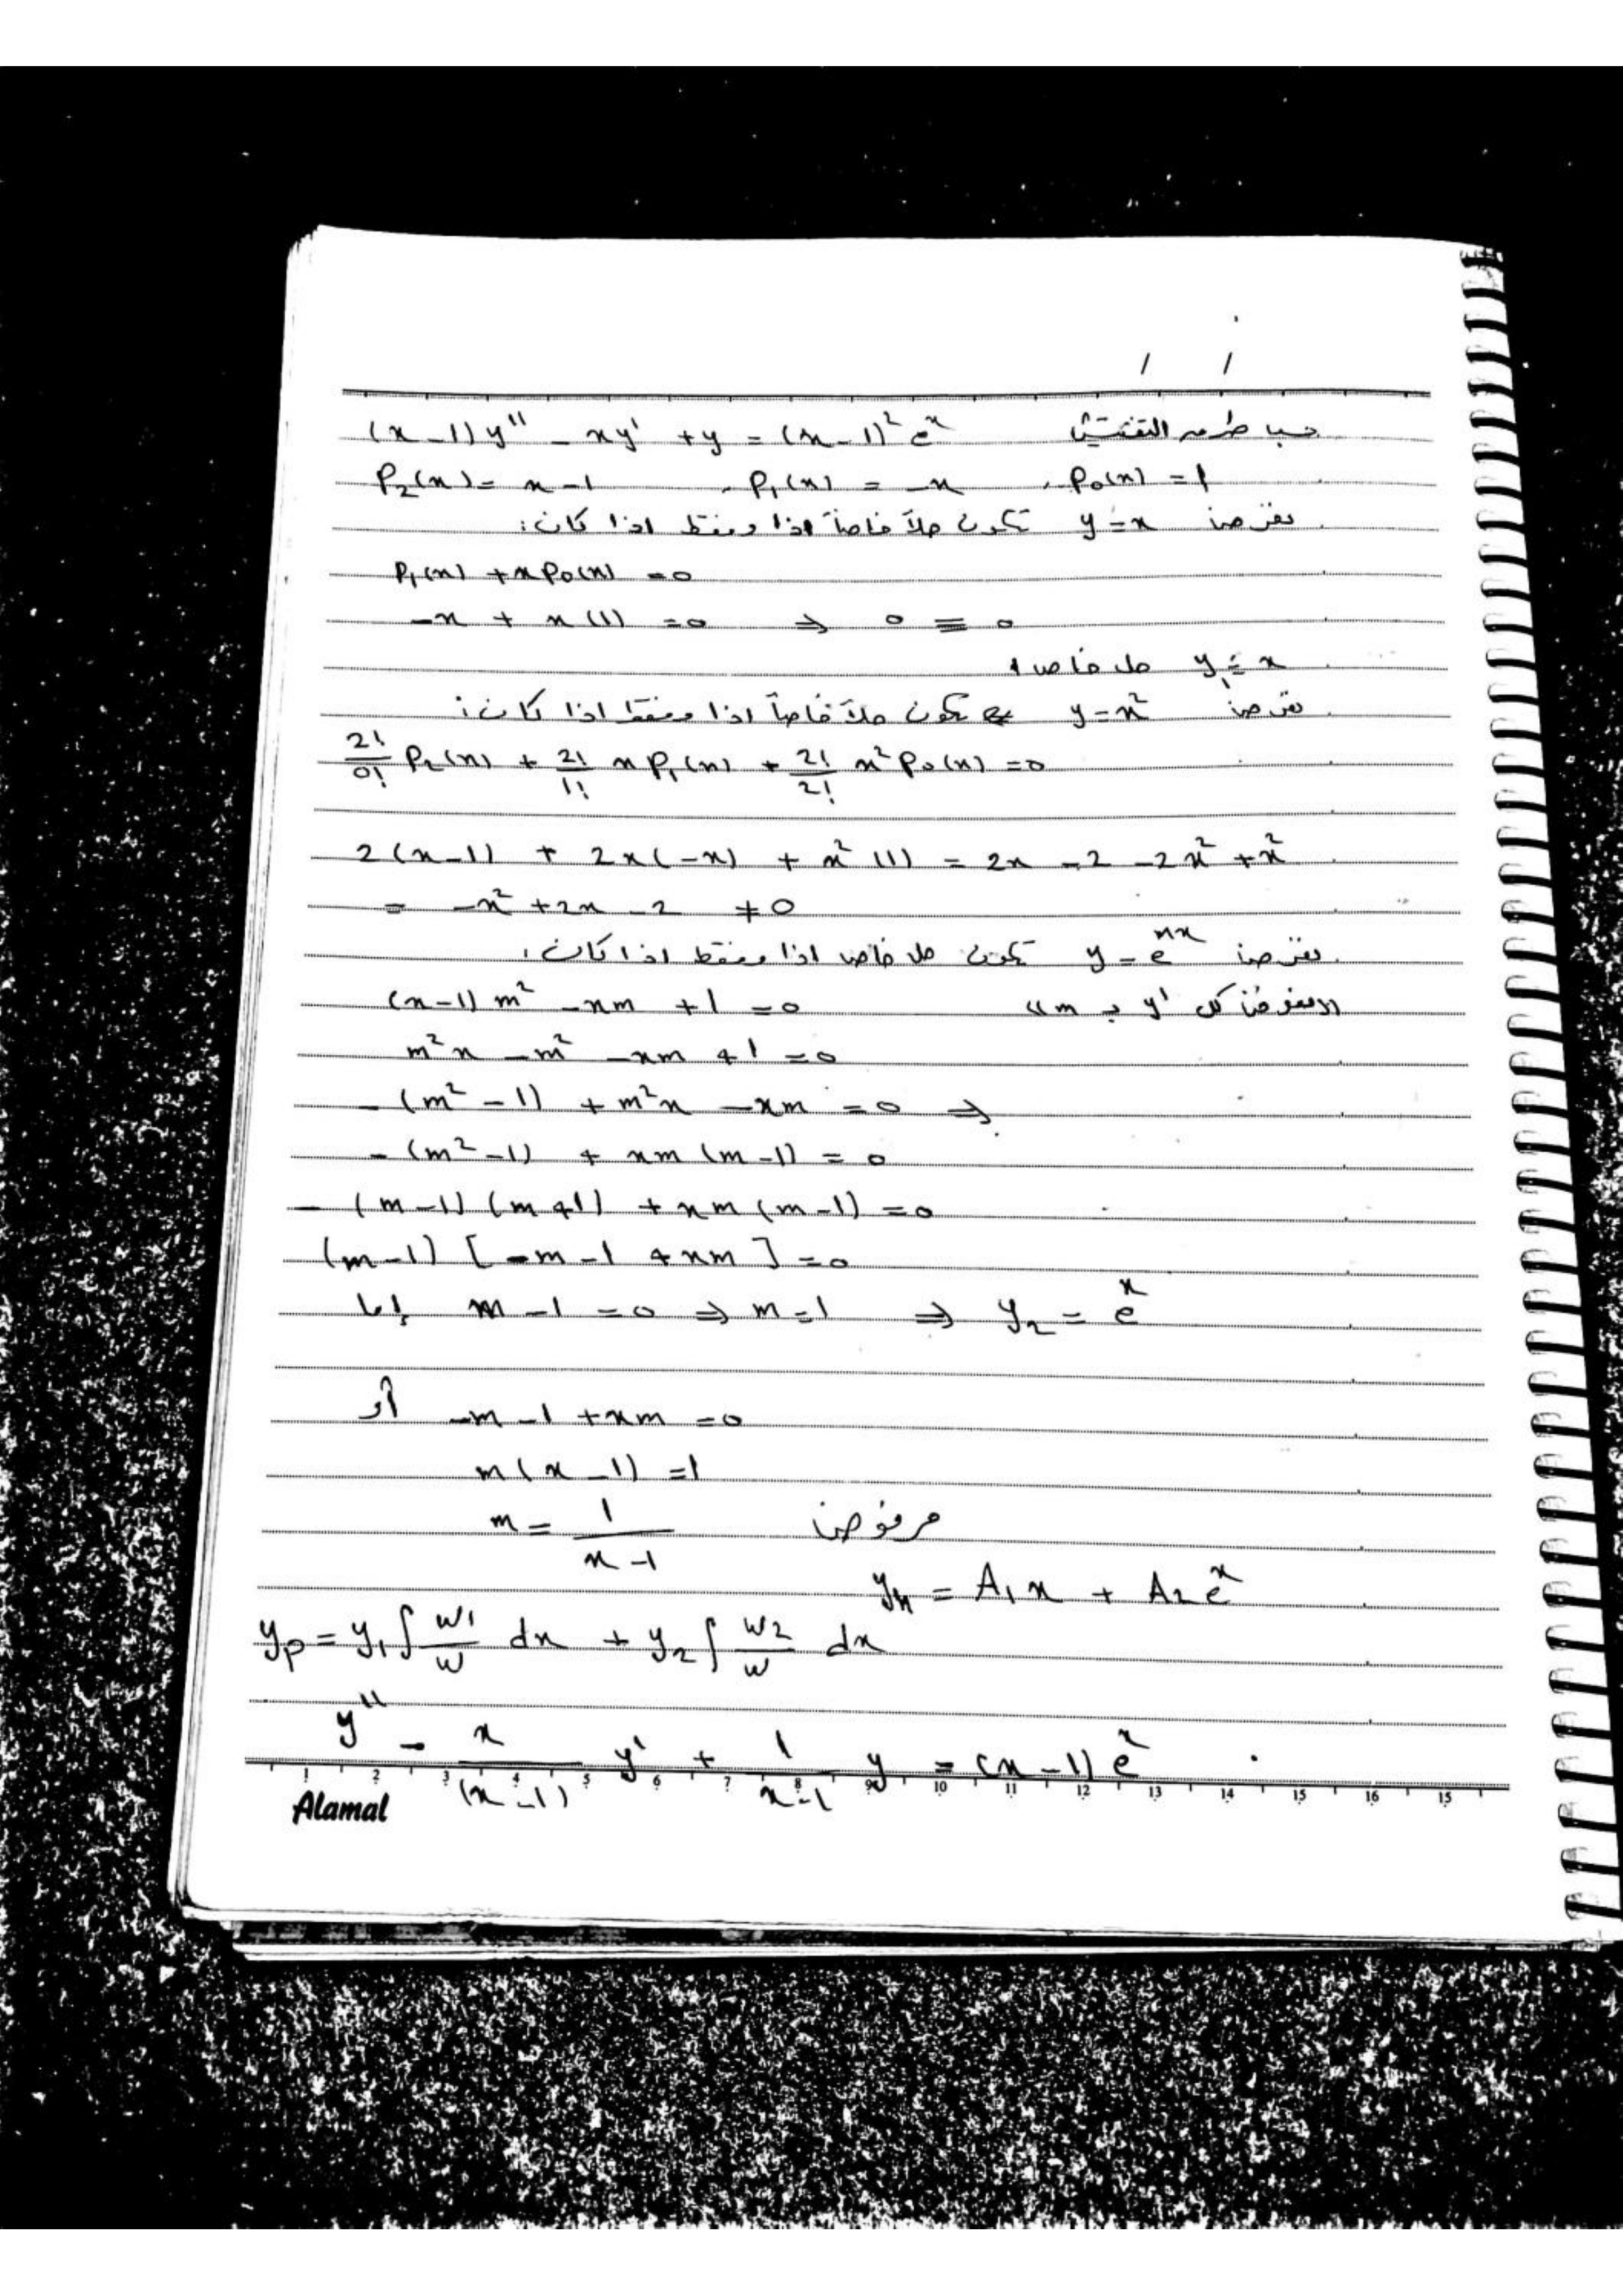 / /
(x-1)y'' - xy' + y = (x-1)² eˣ حسب طريقة التفتيش
P₂(x) = x-1 , P₁(x) = -x , P₀(x) = 1
نفرض y = x تكون حلاً خاصاً اذا وفقط اذا كان:
P₁(x) + xP₀(x) = 0
-x + x(1) = 0 ⇒ 0 = 0
y₁ = x حل خاص
نفرض y = x² تكون حلاً خاصاً اذا وفقط اذا كان:
2!/0! P₂(x) + 2!/1! xP₁(x) + 2!/2! x²P₀(x) = 0
2(x-1) + 2x(-x) + x²(1) = 2x - 2 - 2x² + x²
= -x² + 2x - 2 ≠ 0
نفرض y = eᵐˣ تكون حل خاص اذا وفقط اذا كان:
(x-1)m² - xm + 1 = 0 ((نعوض كل y' ب m))
m²x - m² - xm + 1 = 0
-(m² - 1) + m²x - xm = 0 ⇒
-(m² - 1) + xm(m-1) = 0
-(m-1)(m+1) + xm(m-1) = 0
(m-1)[-m-1+xm] = 0
إما m - 1 = 0 ⇒ m = 1 ⇒ y₂ = eˣ
أو -m - 1 + xm = 0
m(x-1) = 1
m = 1/(x-1) مرفوض
yₕ = A₁x + A₂eˣ
yₚ = y₁∫ w₁/w dx + y₂∫ w₂/w dx
y'' - x/(x-1) y' + 1/(x-1) y = (x-1)eˣ
1 2 3 4 5 6 7 8 9 10 11 12 13 14 15 16 15
Alamal